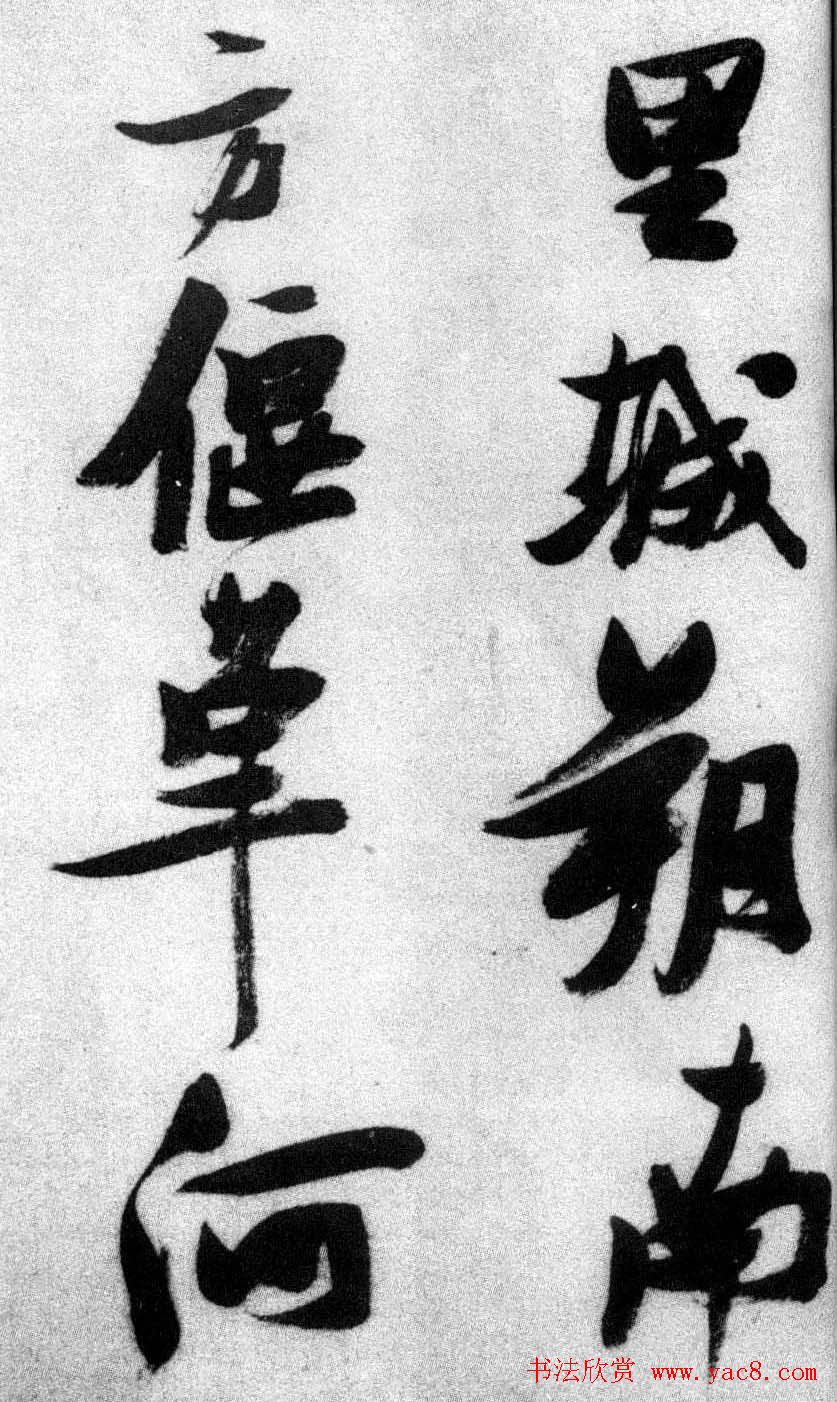 里城朔南
方偃草河
书法欣赏 www.yac8.com